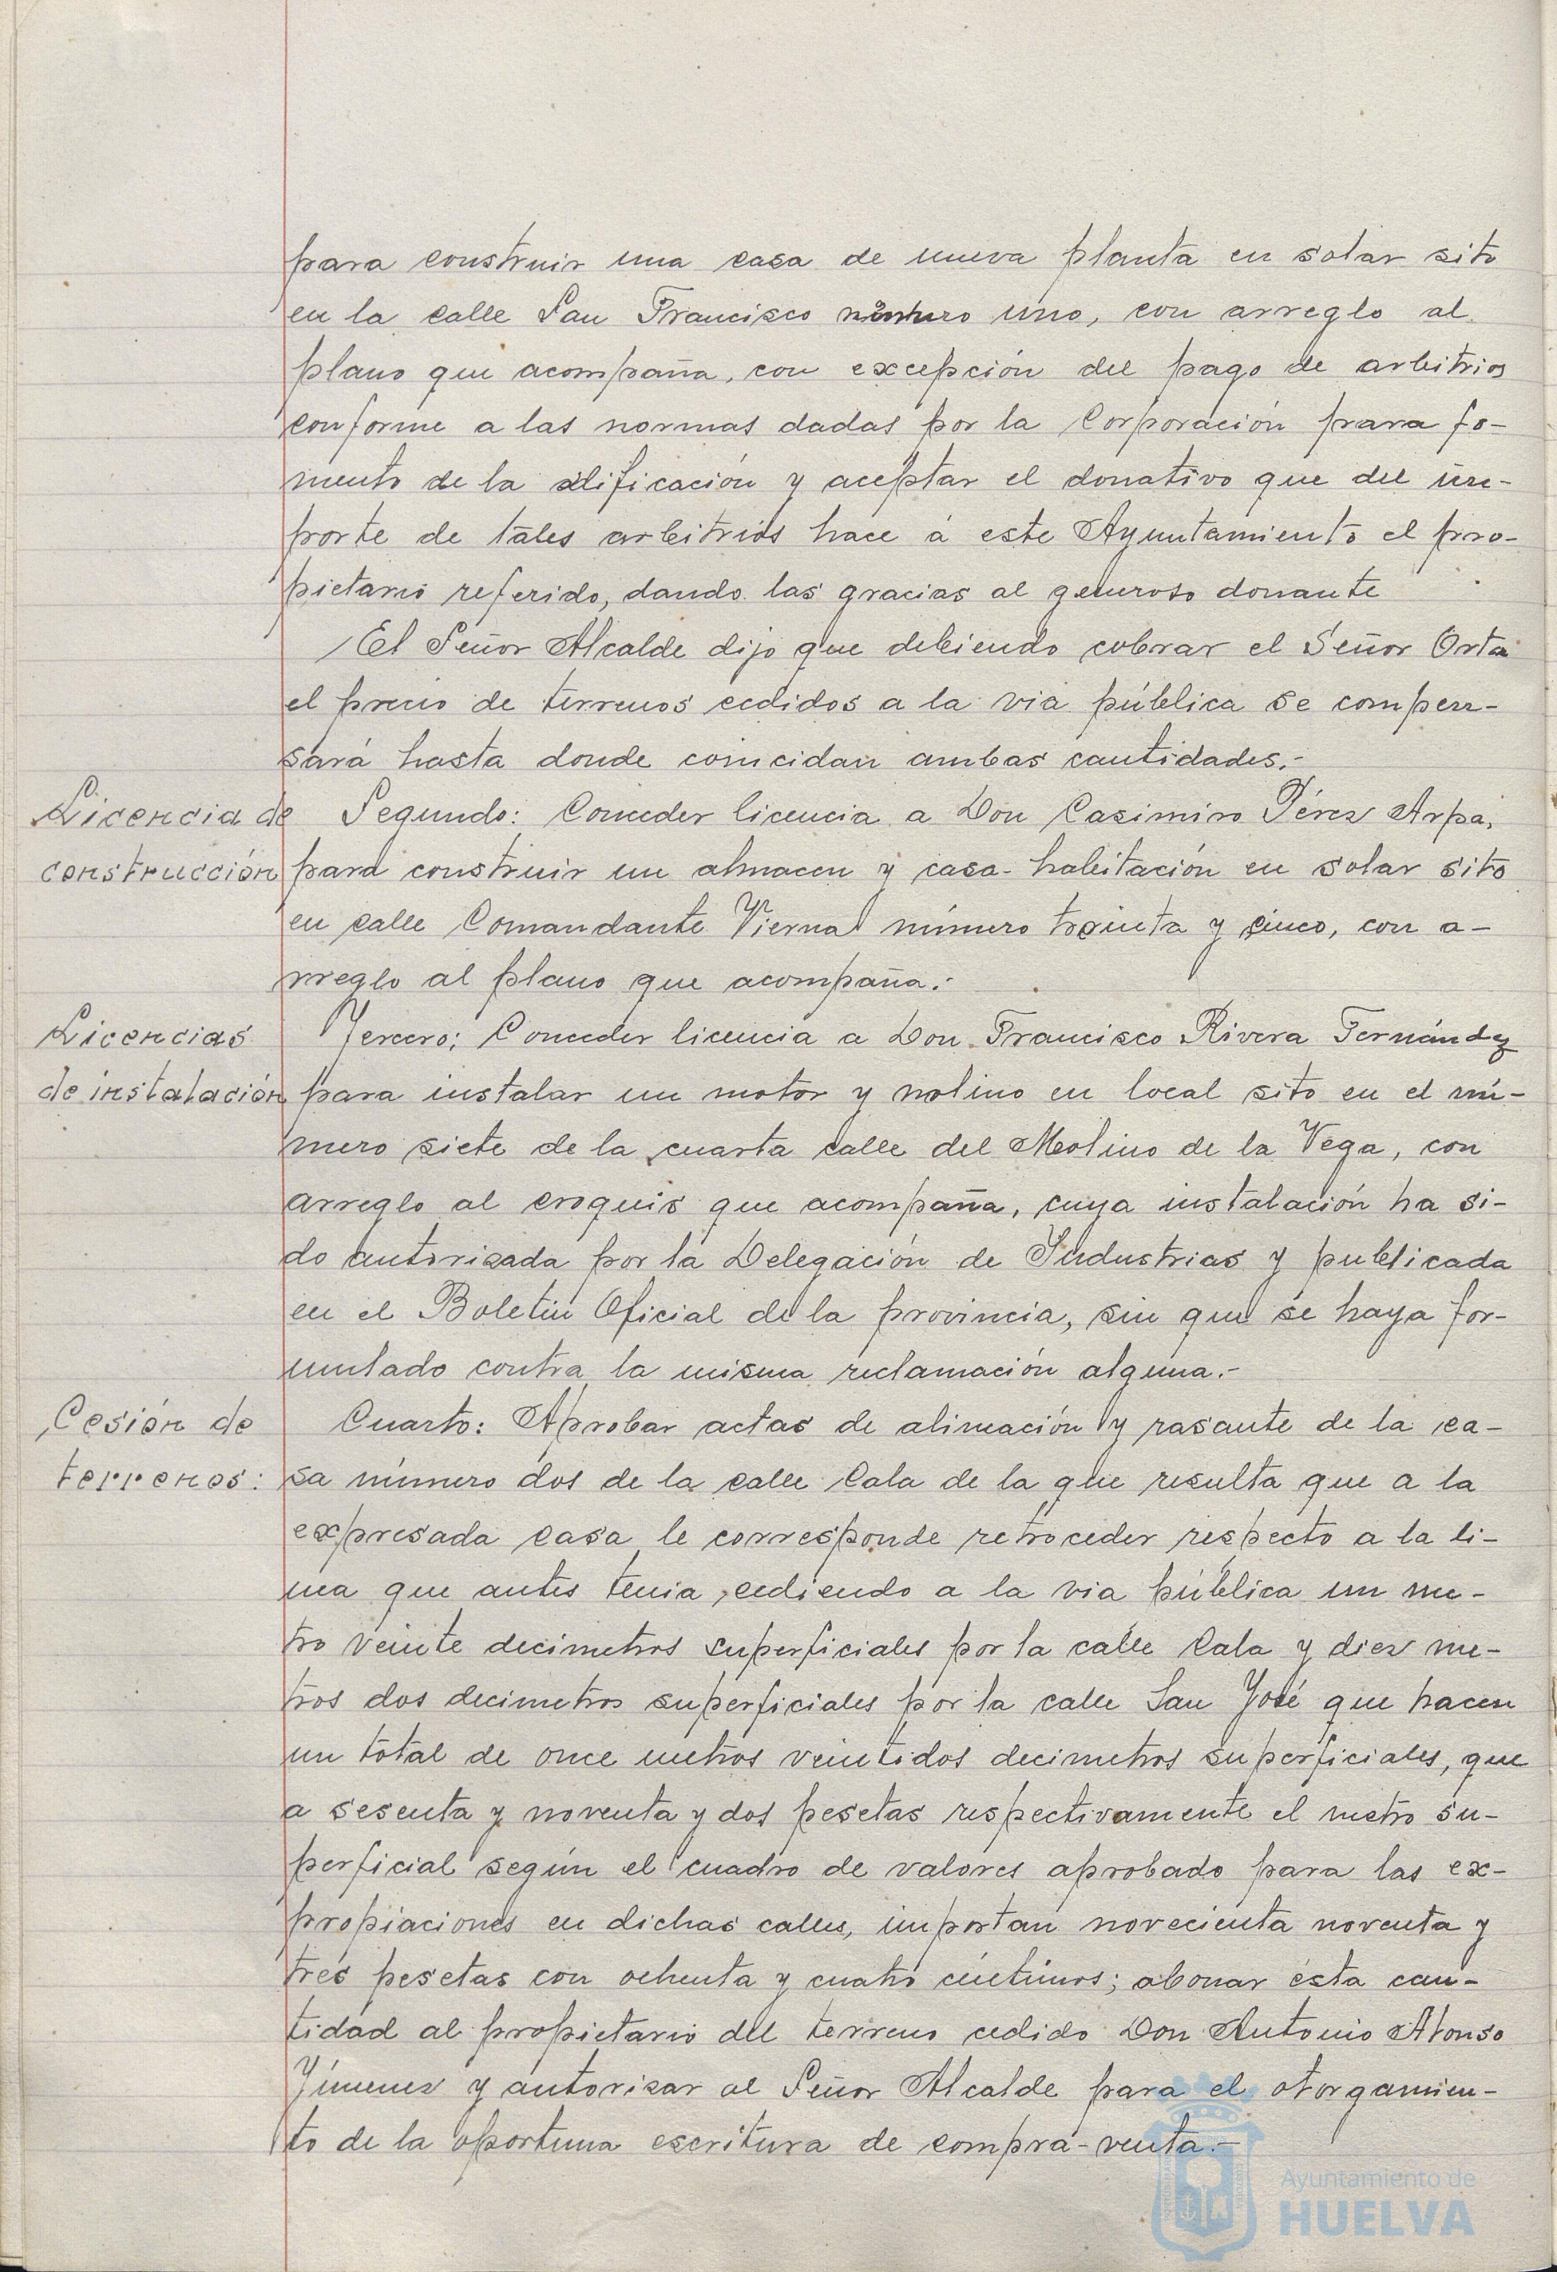 para construir una casa de nueva planta en solar sito
en la calle San Francisco número uno, con arreglo al
plano que acompaña, con excepción del pago de arbitrios
conforme a las normas dadas por la Corporación para fo-
mento de la edificación y aceptar el donativo que del im-
porte de tales arbitrios hace á este Ayuntamiento el pro-
pietario referido, dando las gracias al generoso donante
El Señor Alcalde dijo que debiendo cobrar el Señor Orta
el precio de terrenos cedidos a la via pública se compen-
sará hasta donde coincidan ambas cantidades.-
Licencia de
construcción
Segundo: Conceder licencia a Don Casimiro Pérez Arpa,
para construir un almacen y casa-habitación en solar sito
en calle Comandante Vierna número treinta y cinco, con a-
rreglo al plano que acompaña.-
Licencias
de instalación
Tercero: Conceder licencia a Don Francisco Rivera Fernández
para instalar un motor y molino en local sito en el nú-
mero siete de la cuarta calle del Molino de la Vega, con
arreglo al croquis que acompaña, cuya instalación ha si-
do autorizada por la Delegación de Industrias y publicada
en el Boletin Oficial de la provincia, sin que se haya for-
mulado contra la misma reclamación alguna.-
Cesión de
terrenos:
Cuarto: Aprobar actas de alineación y rasante de la ca-
sa número dos de la calle Cala de la que resulta que a la
expresada casa le corresponde retroceder respecto a la li-
nea que antes tenia, cediendo a la via pública un me-
tro veinte decimetros superficiales por la calle Cala y diez me-
tros dos decimetros superficiales por la calle San José que hacen
un total de once metros veintidos decimetros superficiales, que
a sesenta y noventa y dos pesetas respectivamente el metro su-
perficial según el cuadro de valores aprobado para las ex-
propiaciones en dichas calles, importan novecienta noventa y
tres pesetas con ochenta y cuatro céntimos; abonar ésta can-
tidad al propietario del terreno cedido Don Antonio Alonso
Jímenez y autorizar al Señor Alcalde para el otorgamien-
to de la oportuna escritura de compra-venta.-
Ayuntamiento de
HUELVA